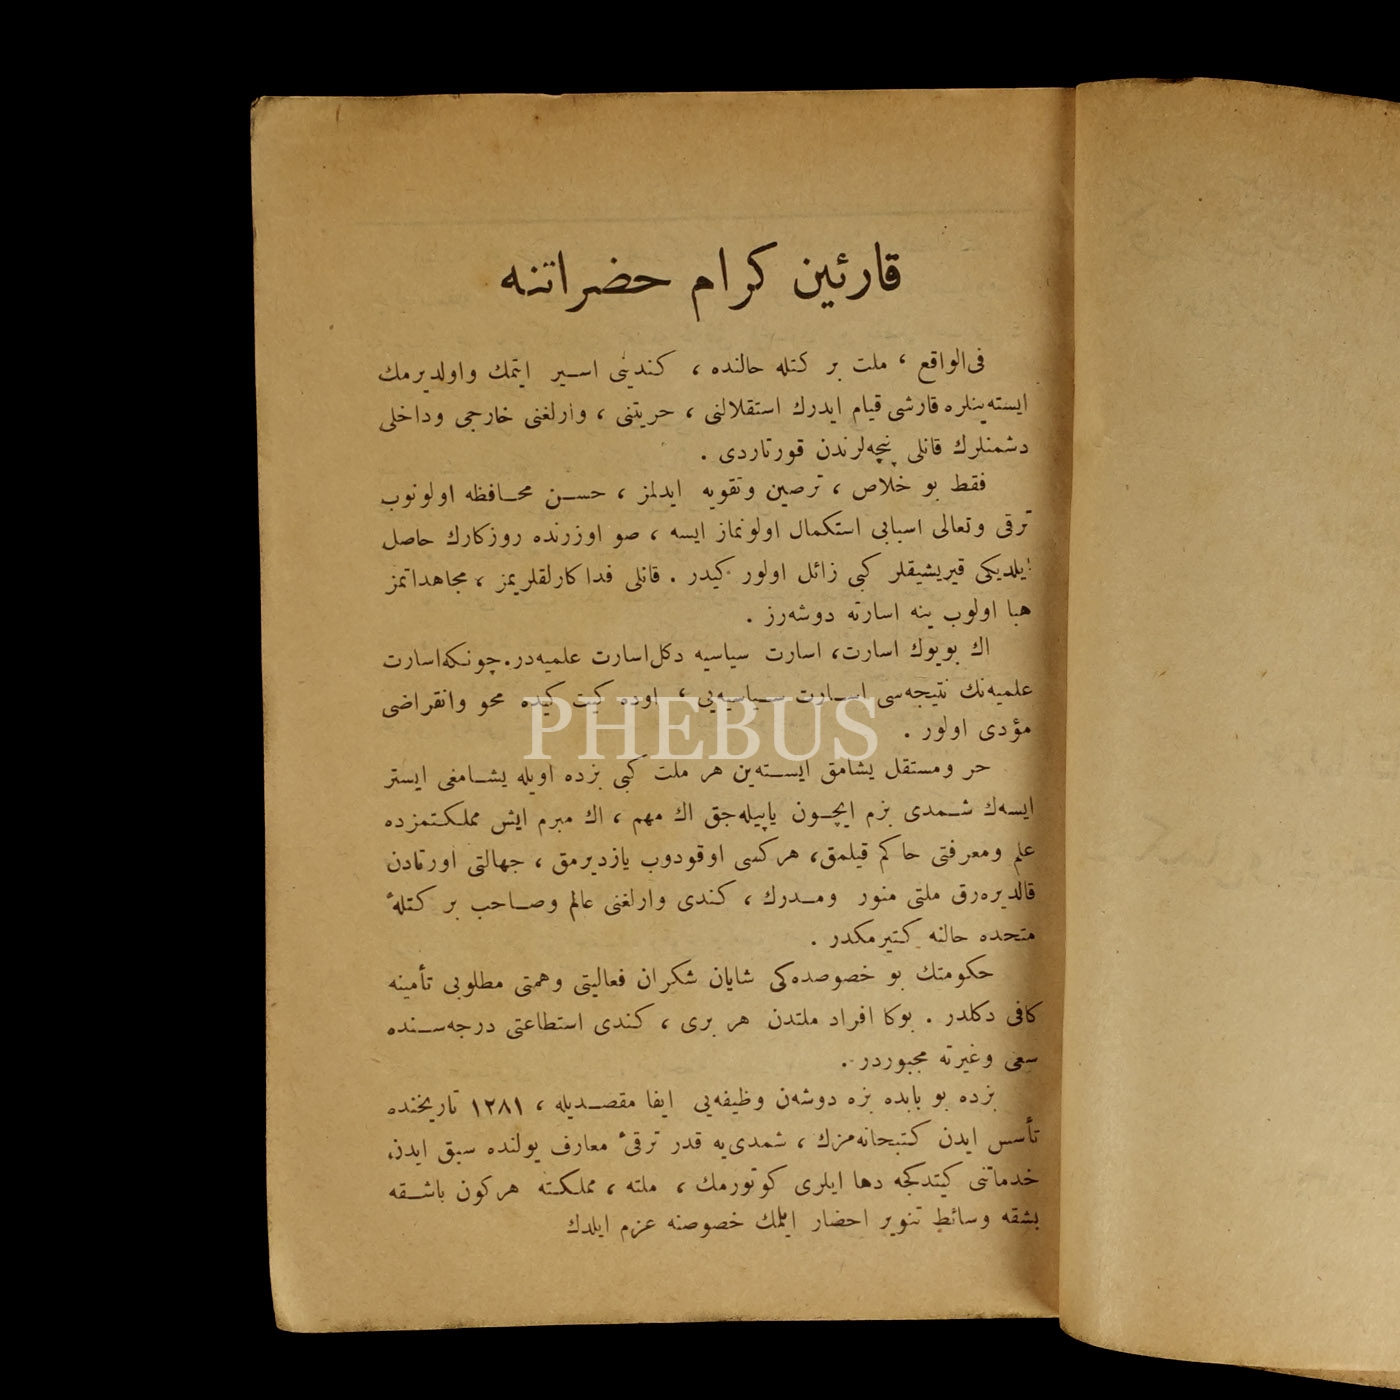 قارئین كرام حضراتنه
فی‌الواقع ، ملت بر كتله حالنده ، كندینی اسیر ایتمك واولدیرمك
ایسته‌ینلره قارشی قیام ایدرك استقلالنی ، حریتنی ، وارلغنی خارجی وداخلی
دشمنلرك قانلی پنچه‌لرندن قورتاردی .
فقط بو خلاص ، ترصین وتقویه ایدلمز ، حسن محافظه اولونوب
ترقی وتعالی اسبابی استكمال اولونماز ایسه ، صو اوزرنده روزكارك حاصل
ایلدیكی قیریشیقلر كبی زائل اولور كیدر . قانلی فداكارلقلریمز ، مجاهداتمز
هبا اولوب ینه اسارته دوشه‌رز .
اك بویوك اسارت، اسارت سیاسیه دكل‌اسارت علمیه‌در.چونكه‌اسارت
علمیه‌نك نتیجه‌سی اسارت سیاسیه‌یی ، اوده كیت كیده محو وانقراضی
مؤدی اولور .
PHEBUS
حر ومستقل یشامق ایسته‌ین هر ملت كبی بزده اویله یشامغی ایستر
ایسه‌ك شمدی بزم ایچون یاپیله‌جق اك مهم ، اك مبرم ایش مملكتمزده
علم ومعرفتی حاكم قیلمق، هركسی اوقودوب یازدیرمق ، جهالتی اورتادن
قالدیره‌رق ملتی منور ومدرك ، كندی وارلغنی عالم وصاحب بر كتلهٔ
متحده حالنه كتیرمكدر .
حكومتك بو خصوصده‌كی شایان شكران فعالیتی وهمتی مطلوبی تأمینه
كافی دكلدر . بوكا افراد ملتدن هر بری ، كندی استطاعتی درجه‌سنده
سعی وغیرته مجبوردر .
بزده بو بابده بزه دوشه‌ن وظیفه‌یی ایفا مقصدیله ، ١٢٨١ تاریخنده
تأسس ایدن كتبخانه‌مزك ، شمدی‌یه قدر ترقیٔ معارف یولنده سبق ایدن
خدماتنی كیتدكجه دها ایلری كوتورمك ، ملته ، مملكته هركون باشقه
بشقه وسائط تنویر احضار ایلمك خصوصنه عزم ایلدك